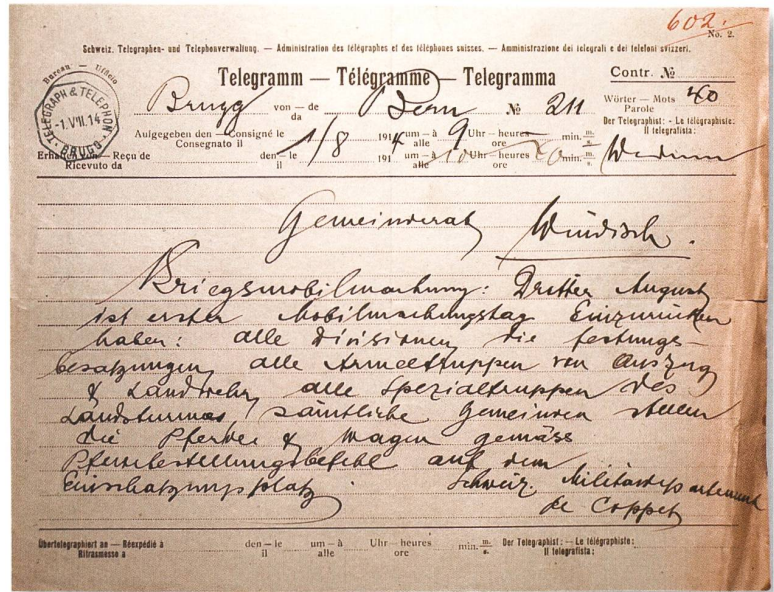 602.
No. 2.
Schweiz. Telegraphen- und Telephonverwaltung. — Administration des télégraphes et des téléphones suisses. — Amministrazione dei telegrafi e dei telefoni svizzeri.
Bureau — Ufficio
Telegramm — Télégramme — Telegramma
Contr. №
TELEGRAPH & TELEPHON
-1.VIII.14
BRUGG
Brugg von — de da Bern № 211
Wörter — Mots Parole 40
Aufgegeben den — Consigné le Consegnato il 1/8 1914 um — à alle 9 Uhr — heures ore min. m. s.
Der Telegraphist: - Le télégraphiste: Il telegrafista:
Erhalten — Reçu de Ricevuto da den — le il 191 um — à alle 10 Uhr — heures ore 20 min. m. s.
Gemeinderat Windisch.
Kriegsmobilmachung: Dritter August
ist erster Mobilmachungstag Einzurücken
haben: alle Divisionen, die festungs-
besatzungen, alle Armeetruppen von Auszug
& Landwehr, alle Spezialtruppen des
Landsturmes, sämtliche Gemeinden stellen
die Pferde & Wagen gemäss
Pferdestellungsbefehl auf dem
Einschatzungsplatz.
Schweiz. Militärdepartement
de Coppet
Übertelegraphiert an — Réexpédié à Ritrasmesso a den — le il um — à alle Uhr — heures ore min. m. s. Der Telegraphist: — Le télégraphiste: Il telegrafista: